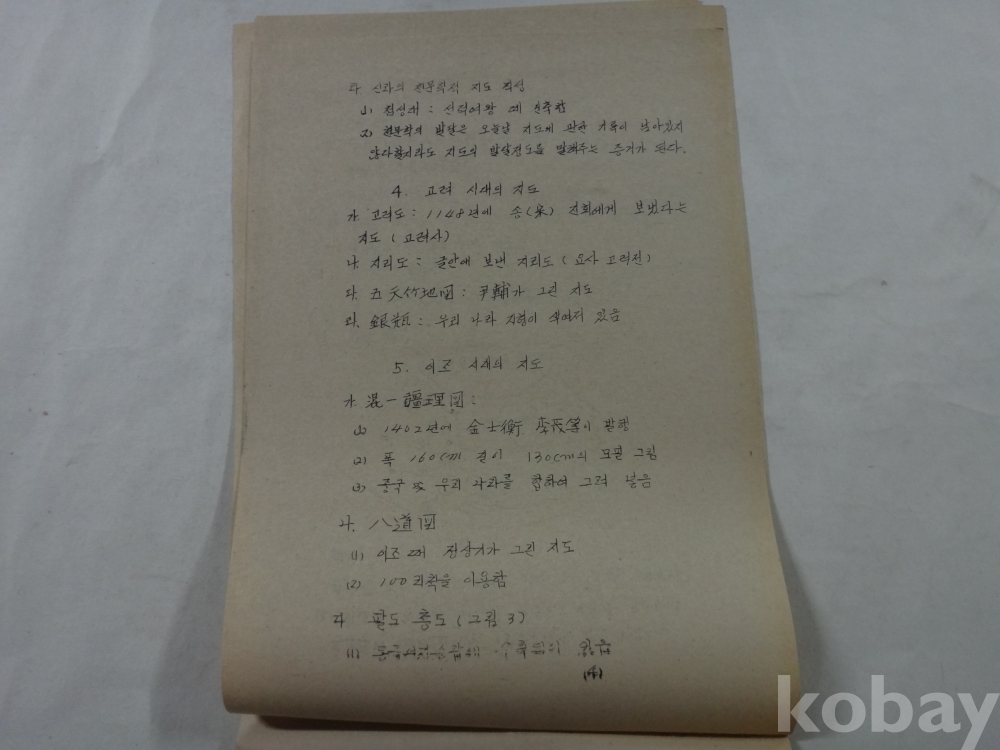 다. 신라의 천문학적 지도 작성
(1) 첨성대 : 선덕여왕 때 건축함
(2) 천문학의 발달은 오늘날 지도에 관한 기록이 남아있지
않다할지라도 지도의 발달정도를 말해주는 증거가 된다.
4. 고려 시대의 지도
가. 고려도 : 1148년에 송(宋) 진회에게 보냈다는
지도 (고려사)
나. 지리도 : 글안에 보낸 지리도 (요사 고려전)
다. 五天竺地図 : 尹輔가 그린 지도
라. 銀瓶 : 우리 나라 지형이 새겨져 있음
5. 이조 시대의 지도
가. 混一疆理図 :
(1) 1402년에 金士衡 李茂等이 발행
(2) 폭 160cm 길이 130cm의 모필 그림
(3) 중국 및 우리 나라를 합하여 그려 넣음
나. 八道図
(1) 이조 때 정상기가 그린 지도
(2) 100리척을 이용함
다 팔도 총도 (그림 3)
(1) 동국여지승람에
(4)
kobay